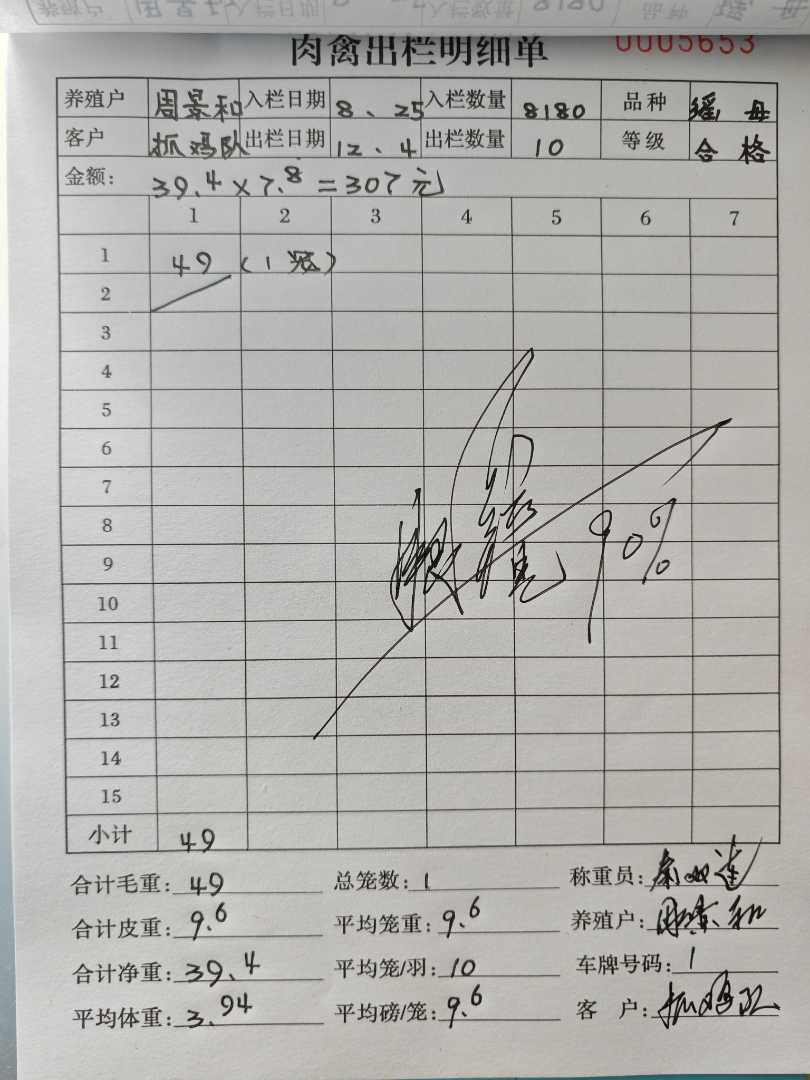 养殖户 入栏日期 入栏数量 8180 品种 瑶母
肉禽出栏明细单 0005653
养殖户 周景和 入栏日期 8、25 入栏数量 8180 品种 瑶 母
客户 抓鸡队 出栏日期 12、4 出栏数量 10 等级 合格
金额: 39.4×7.8=307元
1 2 3 4 5 6 7
1 49 (1笼)
2
3
4
5
6
7
8
9 90%
10
11
12
13
14
15
小计 49
合计毛重: 49 总笼数: 1 称重员:
合计皮重: 9.6 平均笼重: 9.6 养殖户: 周景和
合计净重: 39.4 平均笼/羽: 10 车牌号码: 1
平均体重: 3.94 平均磅/笼: 9.6 客 户: 抓鸡队